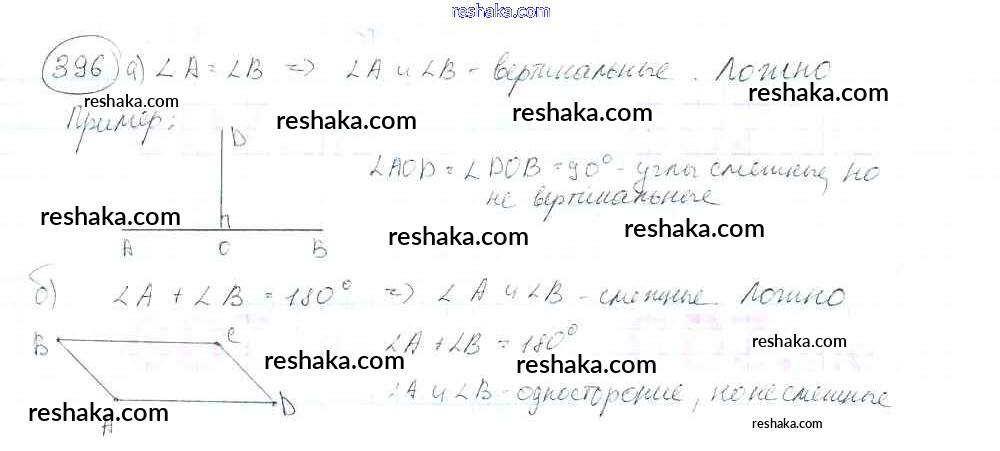 reshaka.com
396 а) ∠A = ∠B => ∠A и ∠B - вертикальные. Ложно
reshaka.com reshaka.com reshaka.com
Пример: reshaka.com reshaka.com
D
∠AOD = ∠DOB = 90° - углы смежные, но
не вертикальные
reshaka.com reshaka.com reshaka.com
A O B
б) ∠A + ∠B = 180° => ∠A и ∠B - смежные. Ложно
B C ∠A + ∠B = 180° reshaka.com
reshaka.com reshaka.com
∠A и ∠B - односторонние, но не смежные
reshaka.com A D reshaka.com